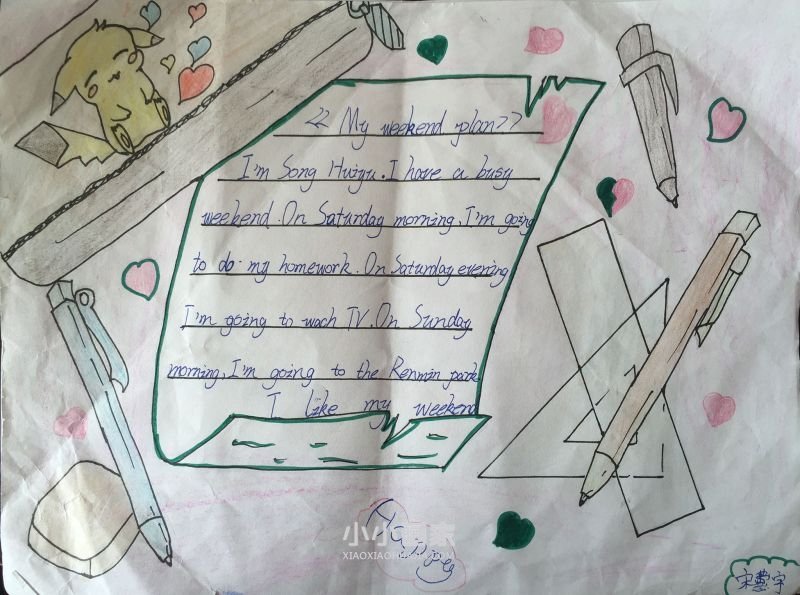 << My weekend plan>>
I'm Song Huiyu. I have a busy
weekend. On Saturday morning, I'm going
to do my homework. On Saturday evening
I'm going to wach TV. On Sunday
morning, I'm going to the Renmin park.
I like my weekend
小小
XIAOXIAO
宋慧宇